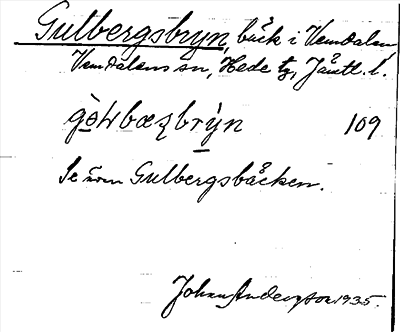 Gulbergsbryn, bäck i Vemdalen
Vemdalens sn, Hede tg, Jämtl. l.
109
Se även Gulbergsbäcken.
Johan Anderson 1935.